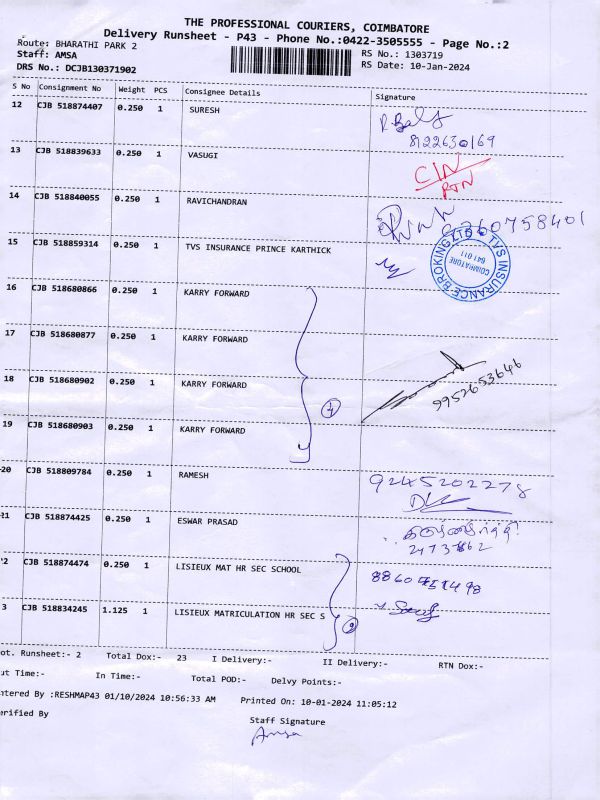 THE PROFESSIONAL COURIERS, COIMBATORE
Delivery Runsheet - P43 - Phone No.:0422-3505555 - Page No.:2
Route: BHARATHI PARK 2 RS No.: 1303719
Staff: AMSA RS Date: 10-Jan-2024
DRS No.: DCJB130371902
S No Consignment No Weight PCS Consignee Details Signature
12 CJB 518874407 0.250 1 SURESH
8122630169
13 CJB 518839633 0.250 1 VASUGI
CIN
RTN
14 CJB 518840055 0.250 1 RAVICHANDRAN
15 CJB 518859314 0.250 1 TVS INSURANCE PRINCE KARTHICK
TVS INSURANCE BROKING LTD
COIMBATORE
641 011
16 CJB 518680866 0.250 1 KARRY FORWARD
17 CJB 518680877 0.250 1 KARRY FORWARD
18 CJB 518680902 0.250 1 KARRY FORWARD
9952653646
4
19 CJB 518680903 0.250 1 KARRY FORWARD
20 CJB 518809784 0.250 1 RAMESH
9245202278
21 CJB 518874425 0.250 1 ESWAR PRASAD
2 CJB 518874474 0.250 1 LISIEUX MAT HR SEC SCHOOL
3 CJB 518834245 1.125 1 LISIEUX MATRICULATION HR SEC S
2
ot. Runsheet:- 2 Total Dox:- 23 I Delivery:- II Delivery:- RTN Dox:-
ut Time:- In Time:- Total POD:- Delvy Points:-
ntered By :RESHMAP43 01/10/2024 10:56:33 AM Printed On: 10-01-2024 11:05:12
erified By Staff Signature
Amsa